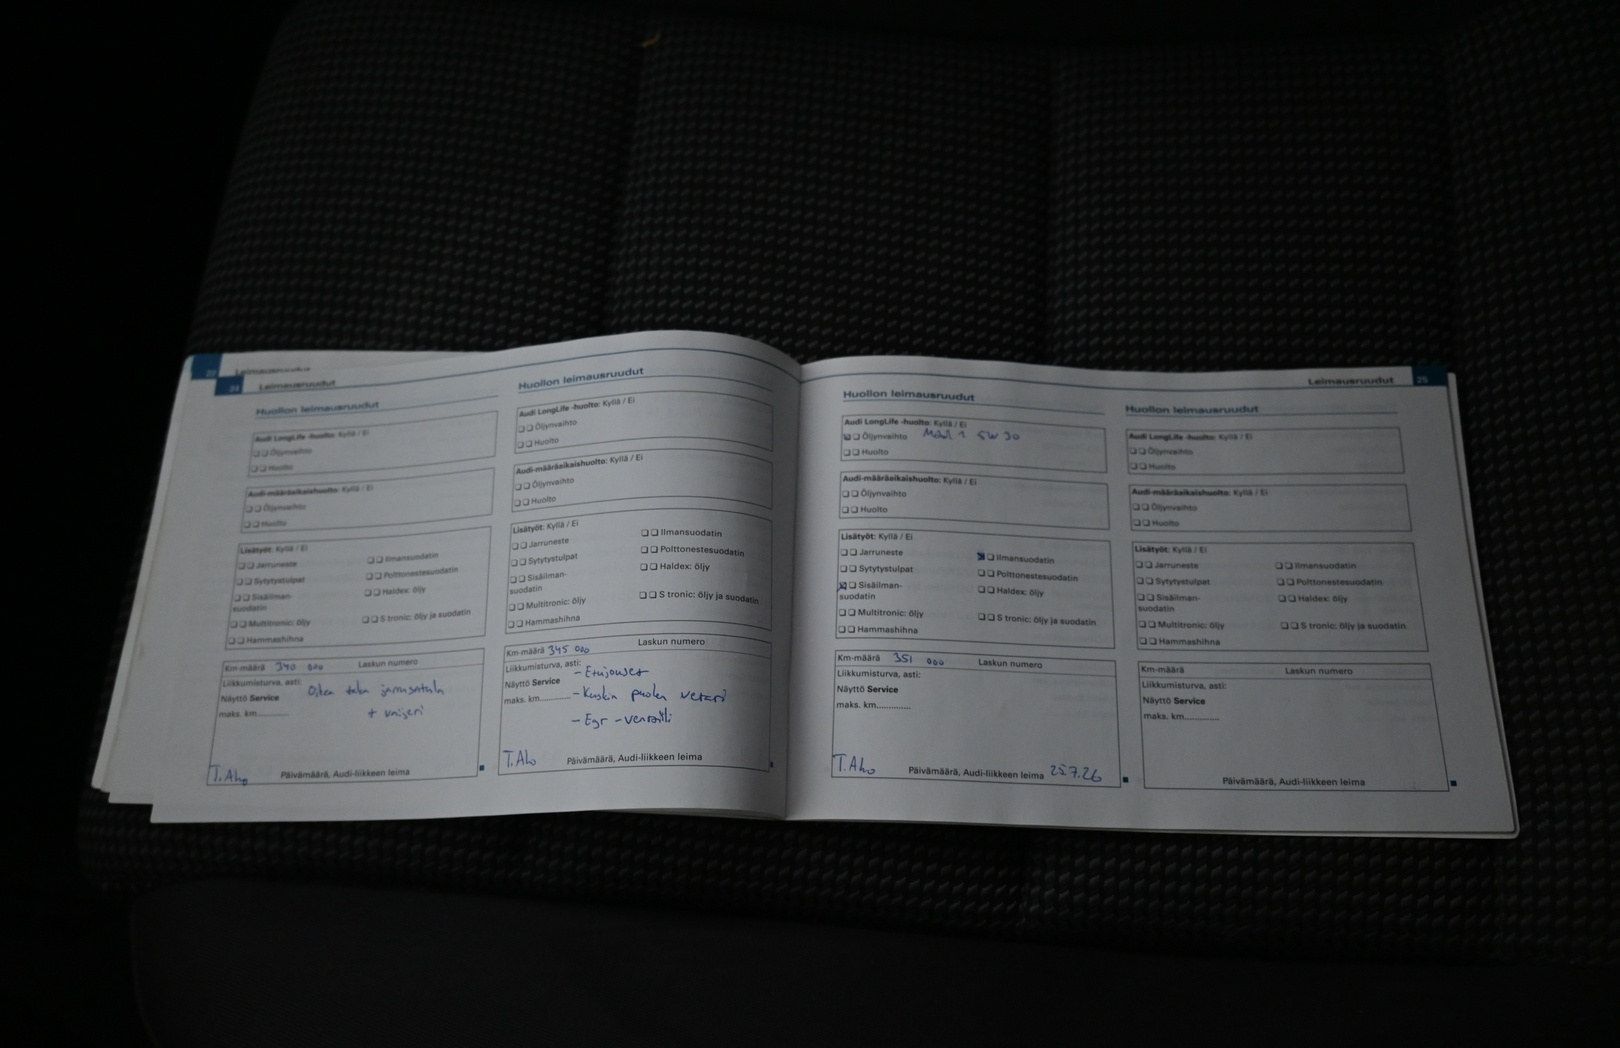 22 Leimausruudut
24 Leimausruudut
Huollon leimausruudut
Audi LongLife -huolto: Kyllä / Ei
Öljynvaihto
Huolto
Audi-määräaikaishuolto: Kyllä / Ei
Öljynvaihto
Huolto
Lisätyöt: Kyllä / Ei
Jarruneste
Ilmansuodatin
Sytytystulpat
Polttonestesuodatin
Sisäilman-
suodatin
Haldex: öljy
Multitronic: öljy
S tronic: öljy ja suodatin
Hammashihna
Km-määrä 340 000 Laskun numero
Liikkumisturva, asti:
Oikea taka jarrusatula
Näyttö Service
+ vaijeri
maks. km..............
T. Aho
Päivämäärä, Audi-liikkeen leima
Huollon leimausruudut
Audi LongLife -huolto: Kyllä / Ei
Öljynvaihto
Huolto
Audi-määräaikaishuolto: Kyllä / Ei
Öljynvaihto
Huolto
Lisätyöt: Kyllä / Ei
Ilmansuodatin
Jarruneste
Polttonestesuodatin
Sytytystulpat
Haldex: öljy
Sisäilman-
suodatin
S tronic: öljy ja suodatin
Multitronic: öljy
Hammashihna
Km-määrä 345 000 Laskun numero
Liikkumisturva, asti:
- Etujouset
Näyttö Service
- Kuskin puolen vetari
maks. km..............
- Egr - venttiili
T. Aho
Päivämäärä, Audi-liikkeen leima
Leimausruudut 25
Huollon leimausruudut
Audi LongLife -huolto: Kyllä / Ei
Öljynvaihto Mobil 1 5W 30
Huolto
Audi-määräaikaishuolto: Kyllä / Ei
Öljynvaihto
Huolto
Lisätyöt: Kyllä / Ei
Jarruneste
Ilmansuodatin
Sytytystulpat
Polttonestesuodatin
Sisäilman-
suodatin
Haldex: öljy
Multitronic: öljy
S tronic: öljy ja suodatin
Hammashihna
Km-määrä 351 000 Laskun numero
Liikkumisturva, asti:
Näyttö Service
maks. km..............
T. Aho
Päivämäärä, Audi-liikkeen leima 25.7.26
Huollon leimausruudut
Audi LongLife -huolto: Kyllä / Ei
Öljynvaihto
Huolto
Audi-määräaikaishuolto: Kyllä / Ei
Öljynvaihto
Huolto
Lisätyöt: Kyllä / Ei
Jarruneste
Ilmansuodatin
Sytytystulpat
Polttonestesuodatin
Sisäilman-
suodatin
Haldex: öljy
Multitronic: öljy
S tronic: öljy ja suodatin
Hammashihna
Km-määrä Laskun numero
Liikkumisturva, asti:
Näyttö Service
maks. km..............
Päivämäärä, Audi-liikkeen leima